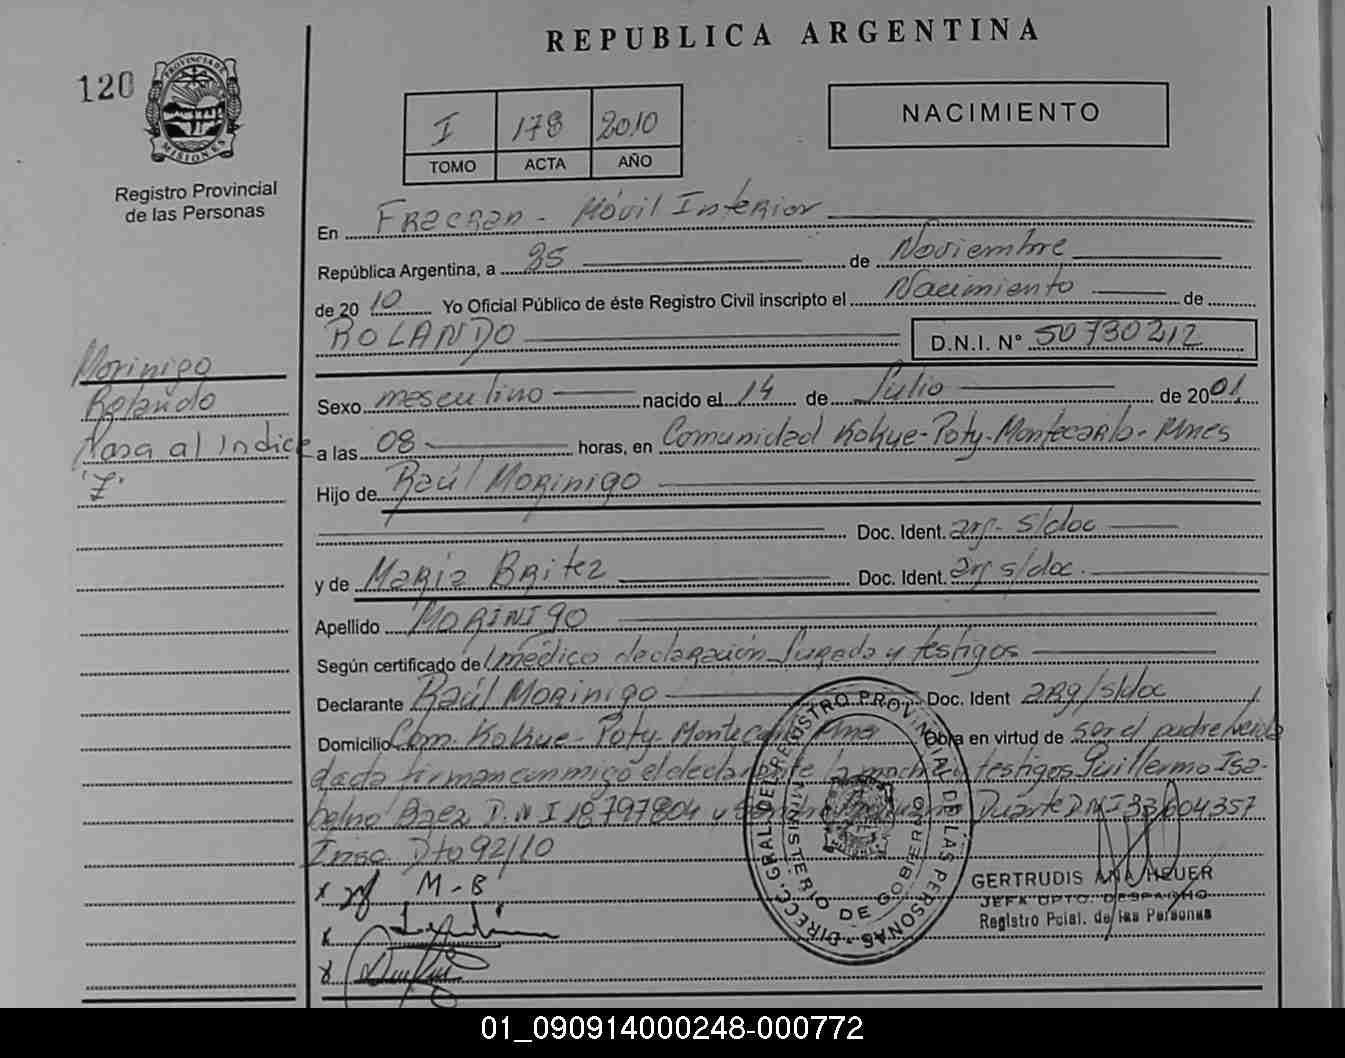 REPUBLICA ARGENTINA
120
PROVINCIA DE
MISIONES
Registro Provincial
de las Personas
I 178 2010
TOMO ACTA AÑO
NACIMIENTO
En Fracran - Móvil Interior
República Argentina, a 25 de Noviembre
de 2010 Yo Oficial Público de éste Registro Civil inscripto el Nacimiento de
ROLANDO D.N.I. N° 50730212
Morinigo
Rolando
Pasa al Indice
"I"
Sexo masculino nacido el 14 de Julio de 2001
a las 08 horas, en Comunidad Kokue-Poty-Montecarlo-Mnes
Hijo de Raúl Morinigo
Doc. Ident. arg- s/doc
y de Maria Britez Doc. Ident. arg s/doc.
Apellido MORINIGO
Según certificado de médico declaración Jurada y testigos
Declarante Raúl Morinigo Doc. Ident arg/s/doc
Domicilio Com. Kokue-Poty-Montecarlo Mnes Obra en virtud de ser el padre Leida
dada firman conmigo el declarante la madre y testigos Guillermo Isa-
belino Baez D.N.I 18797804 y Duarte DNI 33004357
Insc. Dto 92/10
x M-B
x
x
DIRECC. GRAL. DEL REGISTRO PROVINCIAL DE LAS PERSONAS
MINISTERIO DE GOBIERNO
GERTRUDIS ANA HEUER
JEFA DPTO. DESPACHO
Registro Pcial. de las Personas
01_090914000248-000772